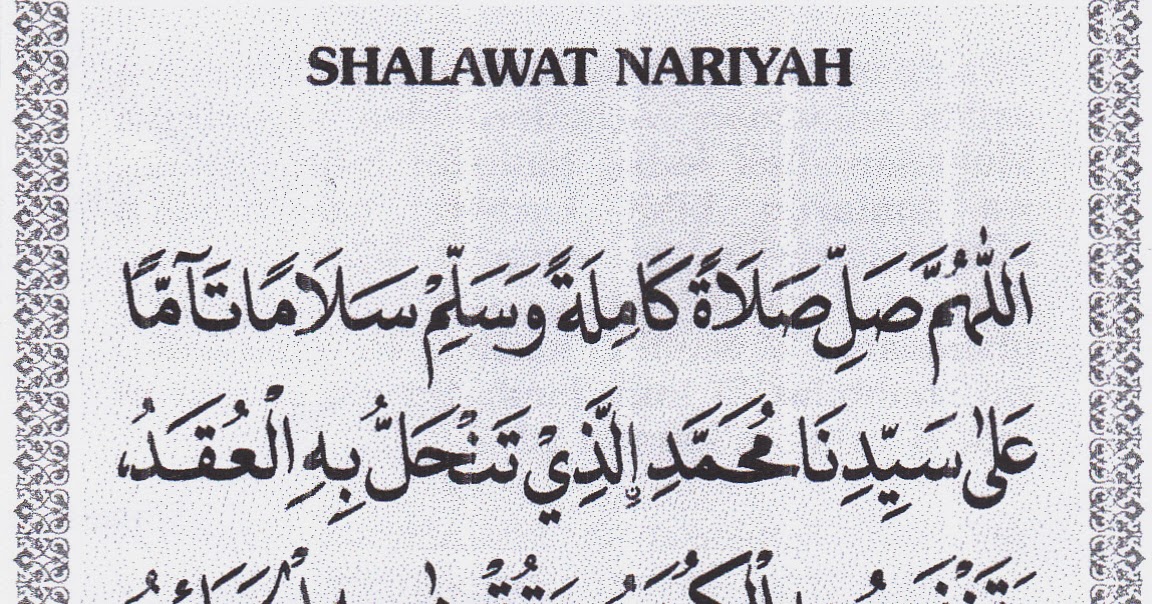 SHALAWAT NARIYAH
اَللّٰهُمَّ صَلِّ صَلَاةً كَامِلَةً وَسَلِّمْ سَلَامًا تَآمًّا
عَلٰى سَيِّدِنَا مُحَمَّدِ ࣙالَّذِيْ تَنْحَلُّ بِهِ الْعُقَدُ،